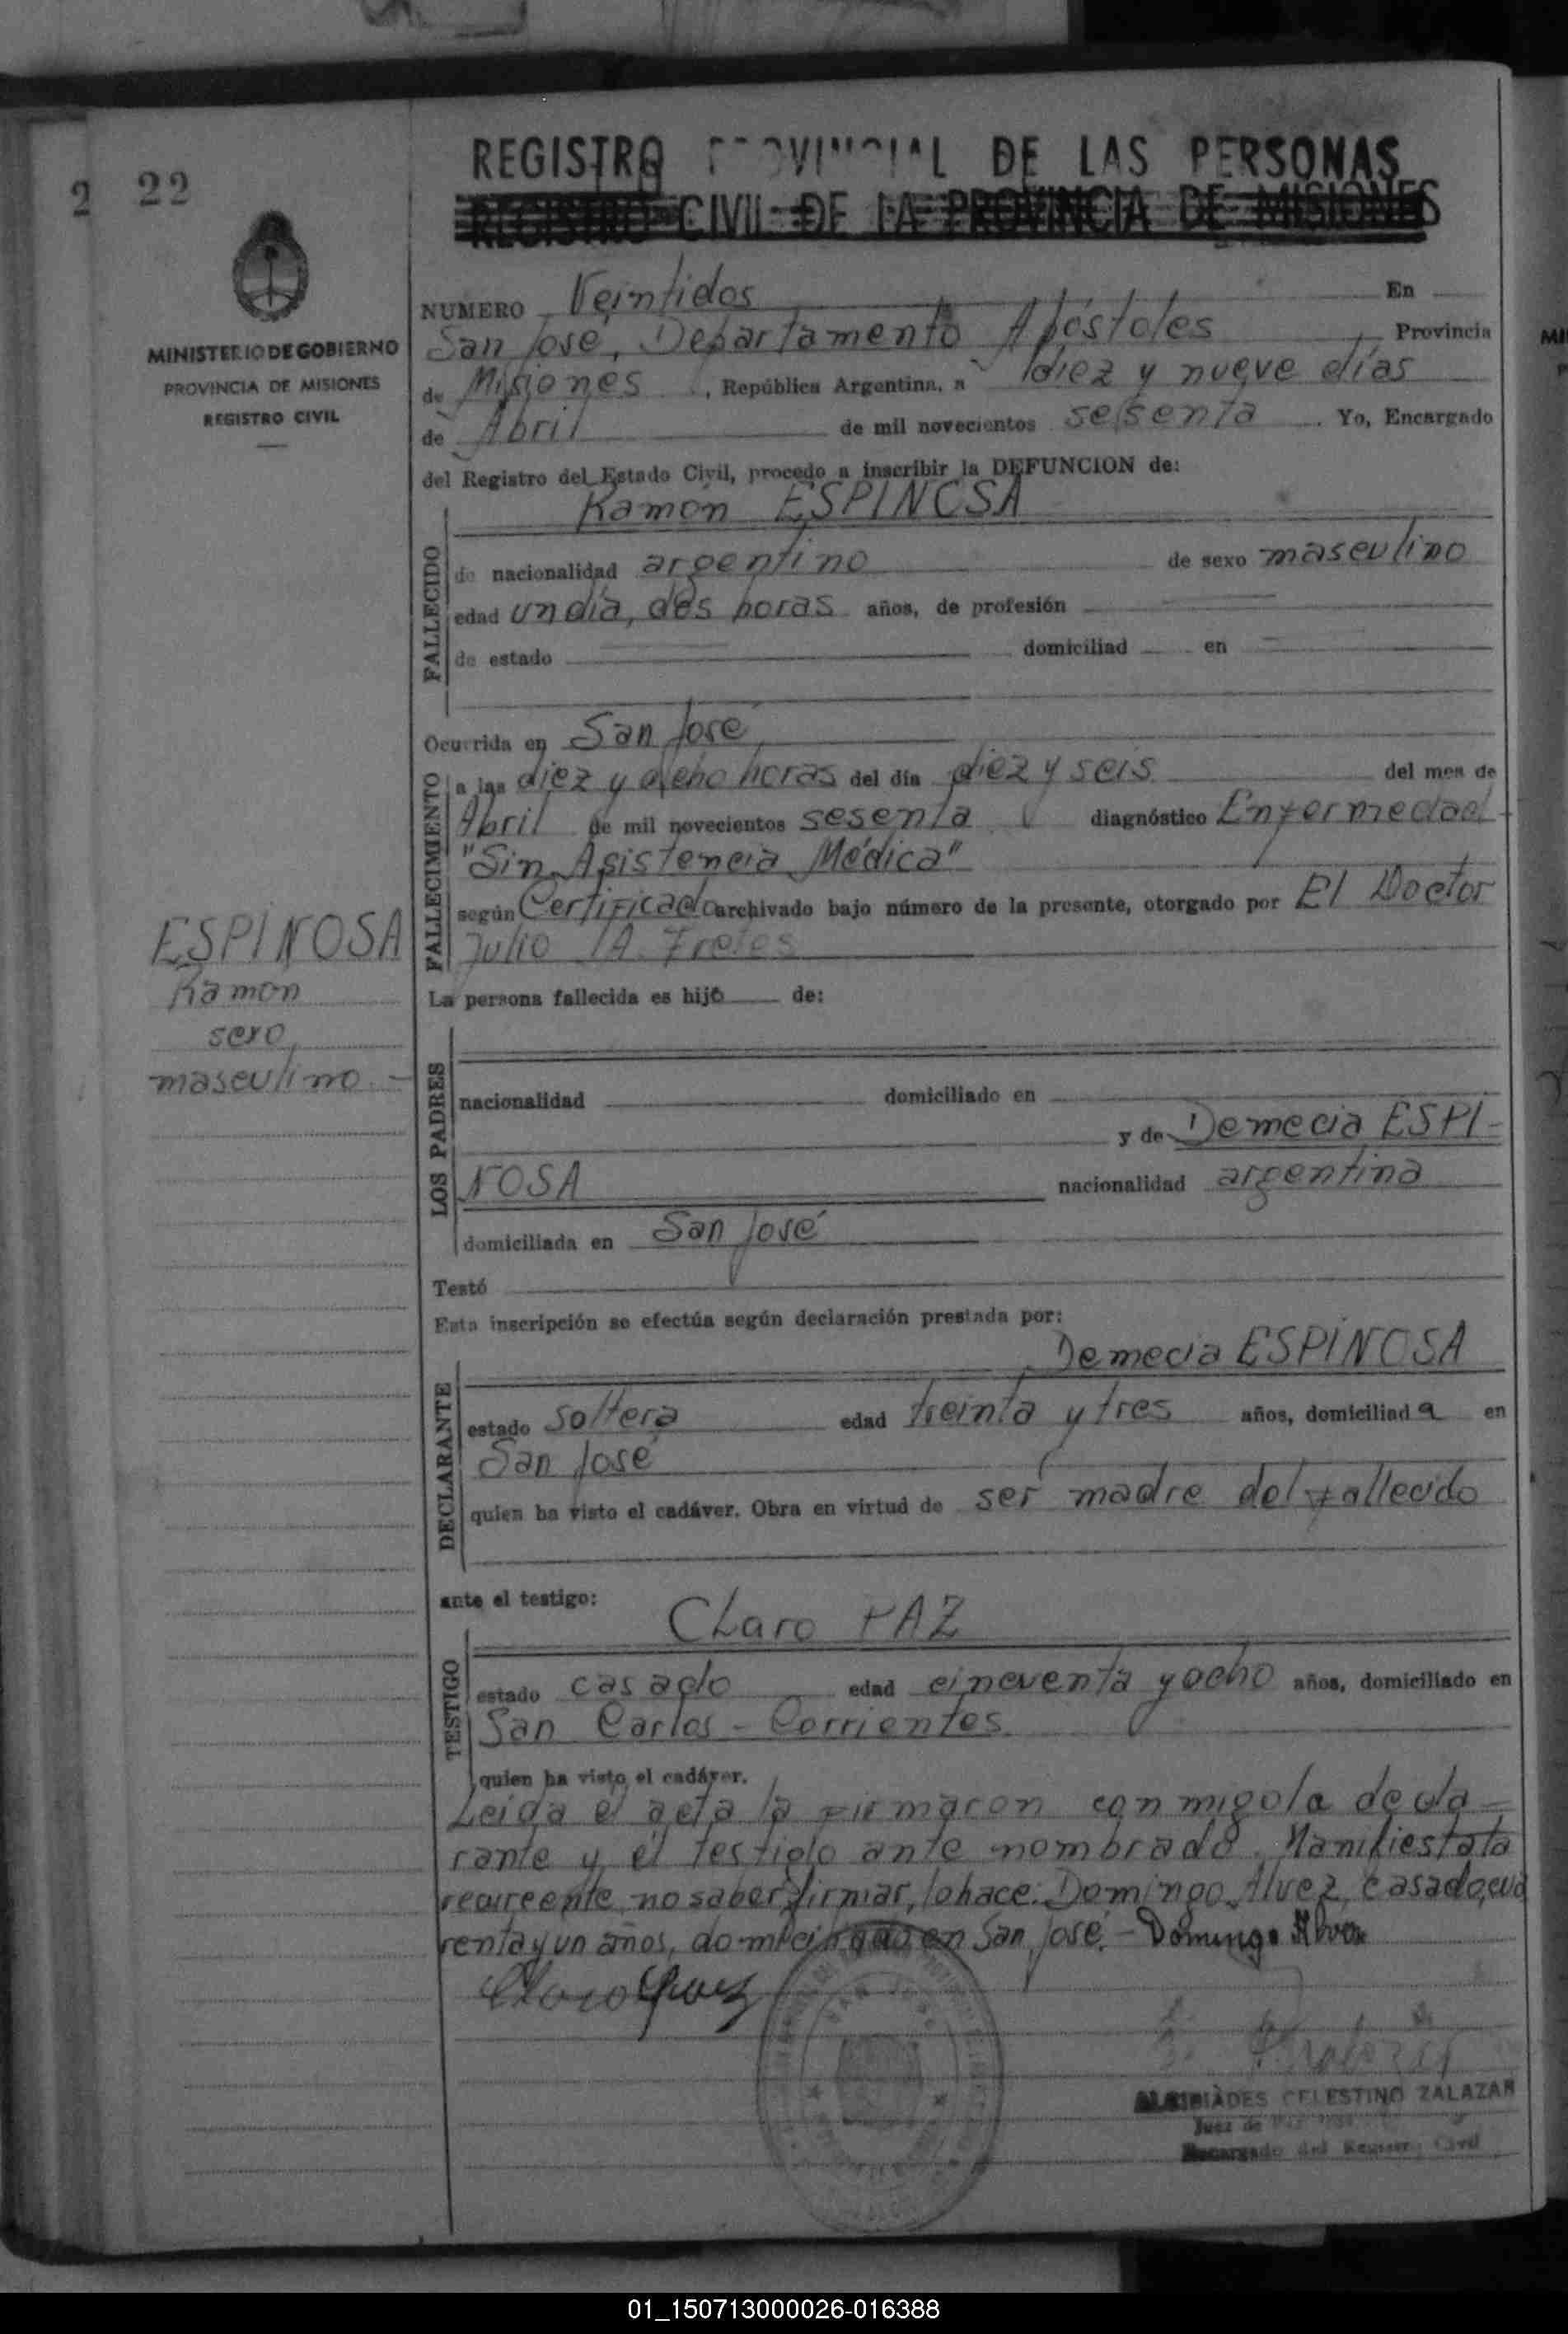 REGISTRO PROVINCIAL DE LAS PERSONAS
REGISTRO CIVIL DE LA PROVINCIA DE MISIONES
2 22
MINISTERIO DE GOBIERNO
PROVINCIA DE MISIONES
REGISTRO CIVIL
NUMERO Veintidos En
San José, Departamento Apóstoles, Provincia
de Misiones, República Argentina, a diez y nueve días
de Abril de mil novecientos sesenta. Yo, Encargado
del Registro del Estado Civil, procedo a inscribir la DEFUNCION de:
Ramón ESPINOSA
FALLECIDO
de nacionalidad argentino de sexo masculino
edad un día, dos horas años, de profesión
de estado domiciliad en
Ocurrida en San José
FALLECIMIENTO
a las diez y ocho horas del día diez y seis del mes de
Abril de mil novecientos sesenta diagnóstico Enfermedad
"Sin Asistencia Médica"
según Certificado archivado bajo número de la presente, otorgado por El Doctor
Julio A. Fretes
ESPINOSA
Ramon
sexo
masculino.-
La persona fallecida es hijo de:
LOS PADRES
nacionalidad domiciliado en
y de Demecia ESPI-
NOSA nacionalidad argentina
domiciliada en San José
Testó
Esta inscripción se efectúa según declaración prestada por:
Demecia ESPINOSA
DECLARANTE
estado soltera edad treinta y tres años, domiciliada en
San José
quien ha visto el cadáver. Obra en virtud de ser madre del fallecido
ante el testigo:
Claro PAZ
TESTIGO
estado casado edad cincuenta y ocho años, domiciliado en
San Carlos - Corrientes.
quien ha visto el cadáver.
Leida el acta la firmaron conmigo la decla-
rante y el testigo ante nombrado. Manifiestata
recureente no saber firmar, lo hace: Domingo Alvez, casado, cua
renta y un años, domiciliado en San José.- Domingo Alvez
Claro Paz
ALCIBIADES CELESTINO ZALAZAR
Juez de Paz
Encargado del Registro Civil
01_150713000026-016388